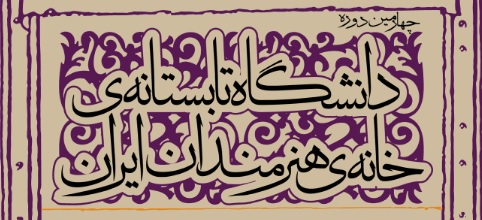 چهارمین دوره
دانشگاه تابستانه‌ی
خانه‌ی هنرمندان ایران